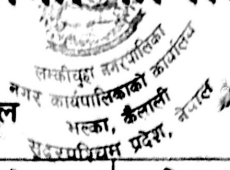 लम्कीचुहा नगरपालिका
नगर कार्यपालिकाको कार्यालय
भल्का, कैलाली
सुदूरपश्चिम प्रदेश, नेपाल
ल